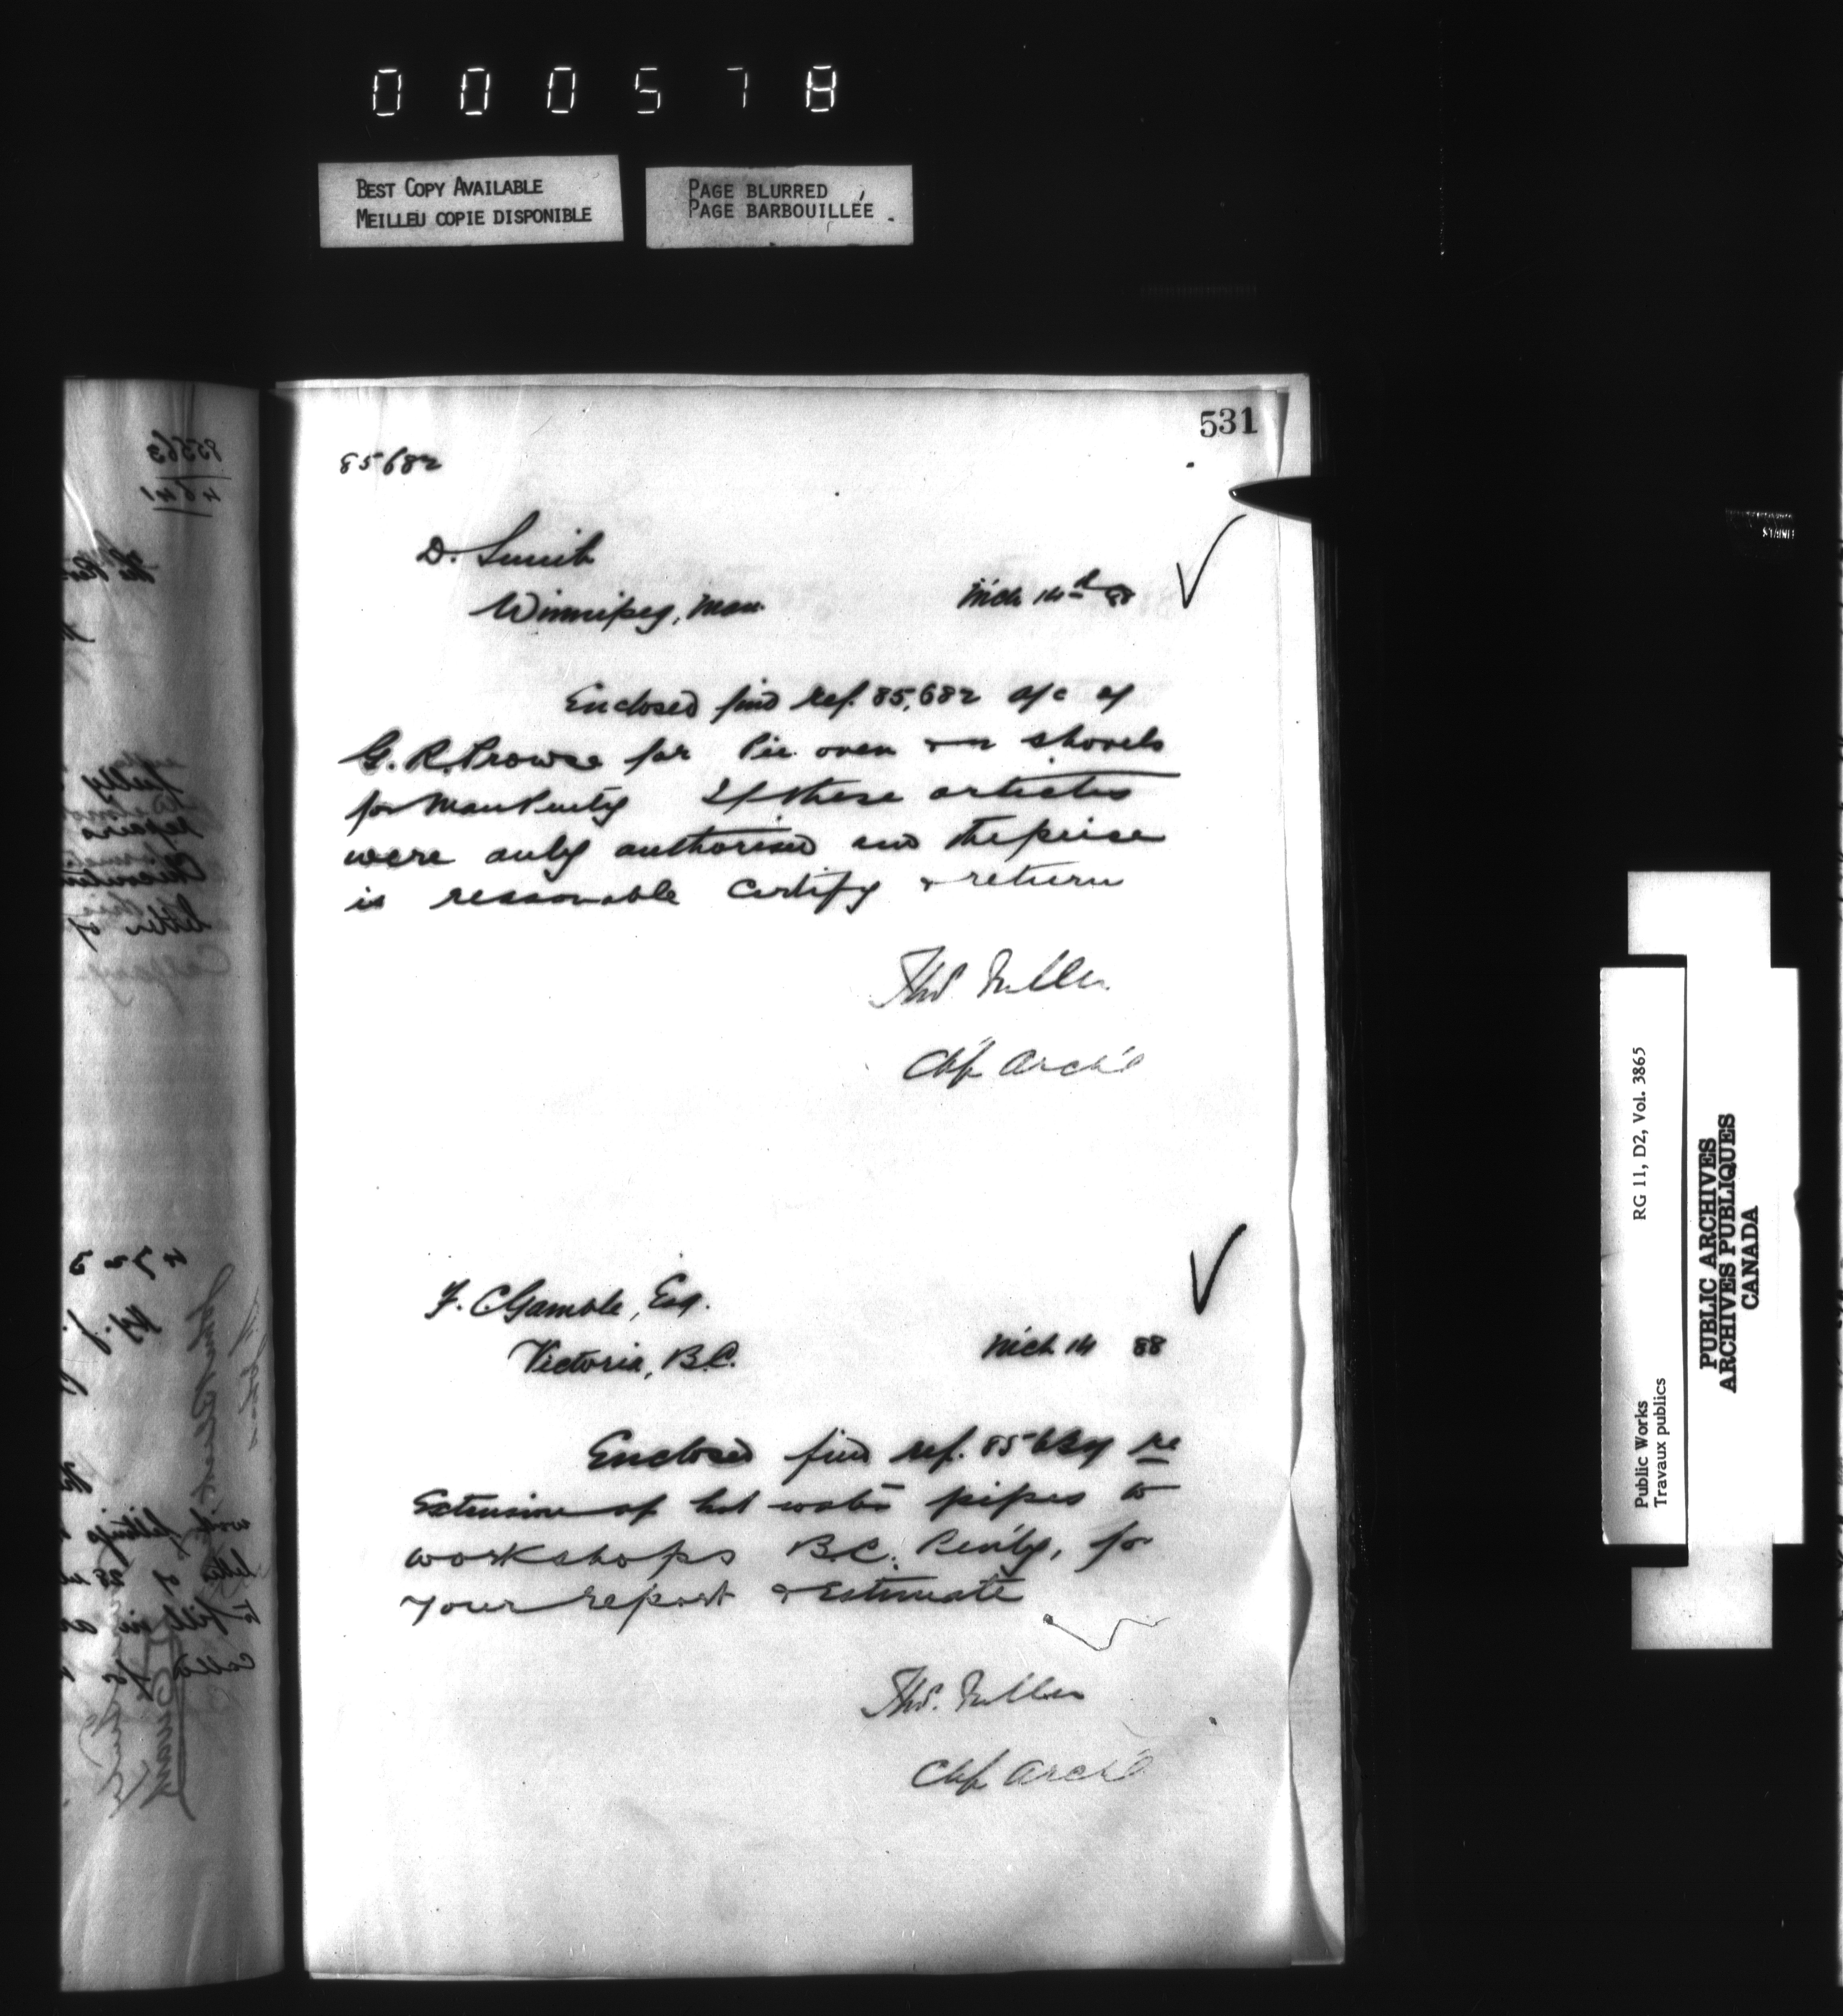 000578
BEST COPY AVAILABLE
MEILLEU COPIE DISPONIBLE
PAGE BLURRED
PAGE BARBOUILLÉE
531
85682
D. Smith
Winnipeg, Man.
Mch 14th 88
Enclosed find ref. 85,682 a/c of
G. R. Prowse for Pie oven shovels
for Man Penty If these articles
were duly authorised and the price
is reasonable certify & return
Thos. Fuller
Chf Archt
F. C. Gamble, Esq.
Victoria, B.C.
Mch 14 88
Enclosed find ref. re
Extension of hot water pipes to
workshops B.C. Penty, for
your report & Estimate
Thos. Fuller
Chf Archt
Public Works
Travaux publics
RG 11, D2, Vol. 3865
PUBLIC ARCHIVES
ARCHIVES PUBLIQUES
CANADA